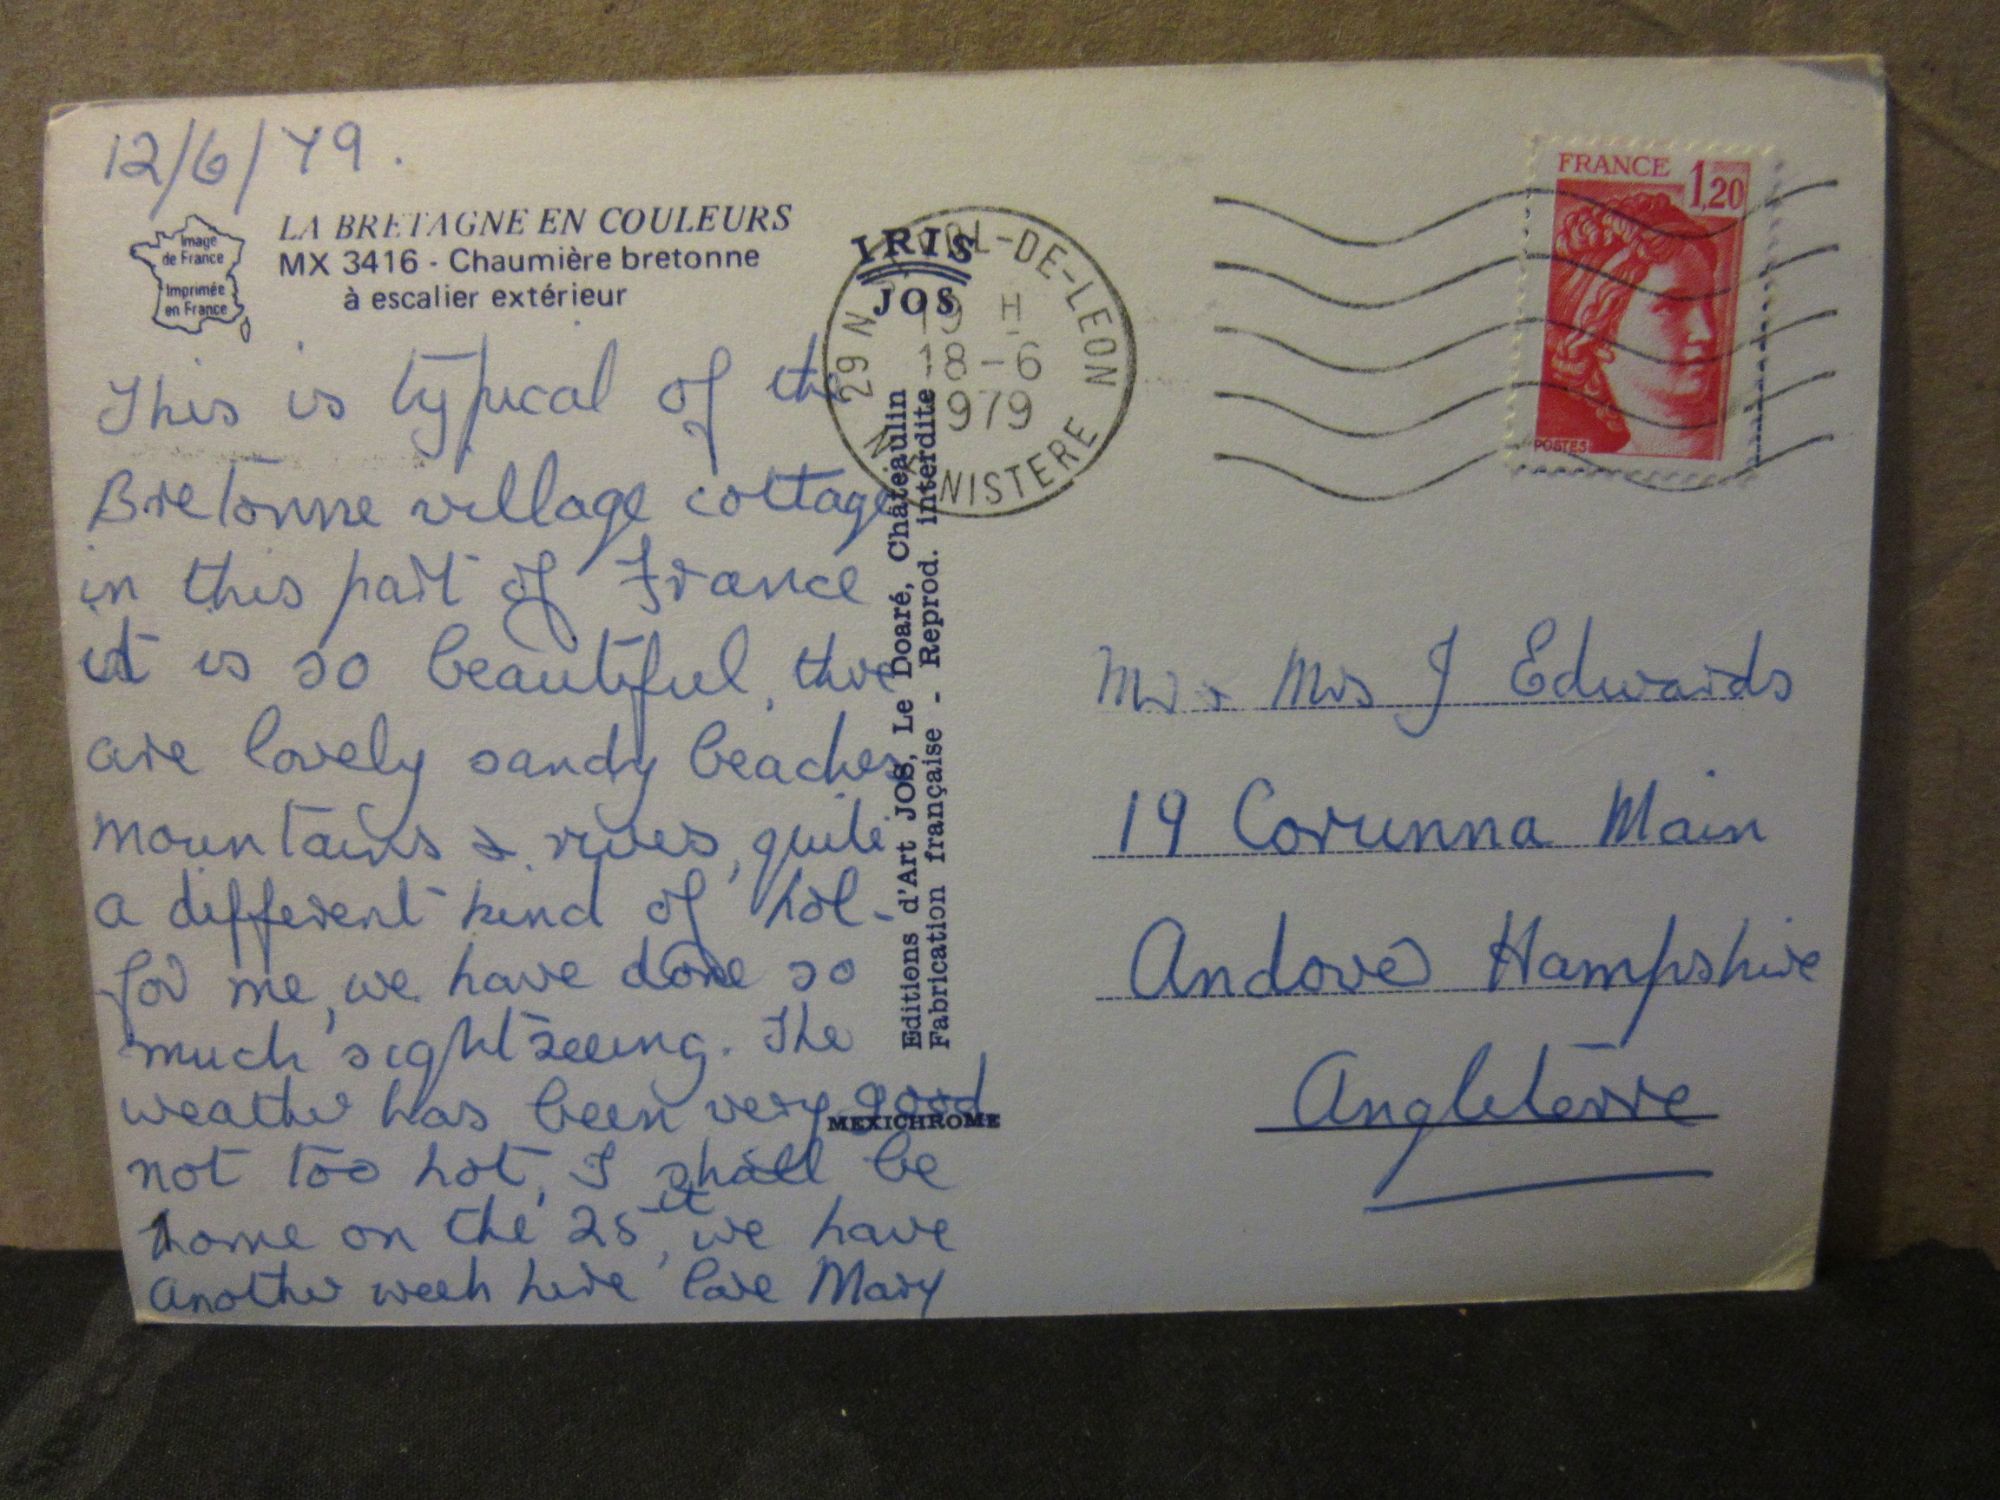 12/6/79.
Image
de France
Imprimée
en France
LA BRETAGNE EN COULEURS
MX 3416 - Chaumière bretonne
à escalier extérieur
This is typical of the
Bretonne village cottage
in this part of France
it is so beautiful, there
are lovely sandy beaches
mountains & rivers, quite
a different kind of hol-
for me, we have done so
much sightseeing. The
weather has been very good
not too hot, I shall be
home on the 25th, we have
another week here love Mary
IRIS
JOS
Editions d'Art JOS, Le Doaré, Châteaulin
Fabrication française - Reprod. interdite
MEXICHROME
29 N POL-DE-LEON
19 H
18-6
1979
N. FINISTERE
FRANCE 1,20
POSTES
Mr & Mrs J Edwards
19 Corunna Main
Andover Hampshire
Angleterre